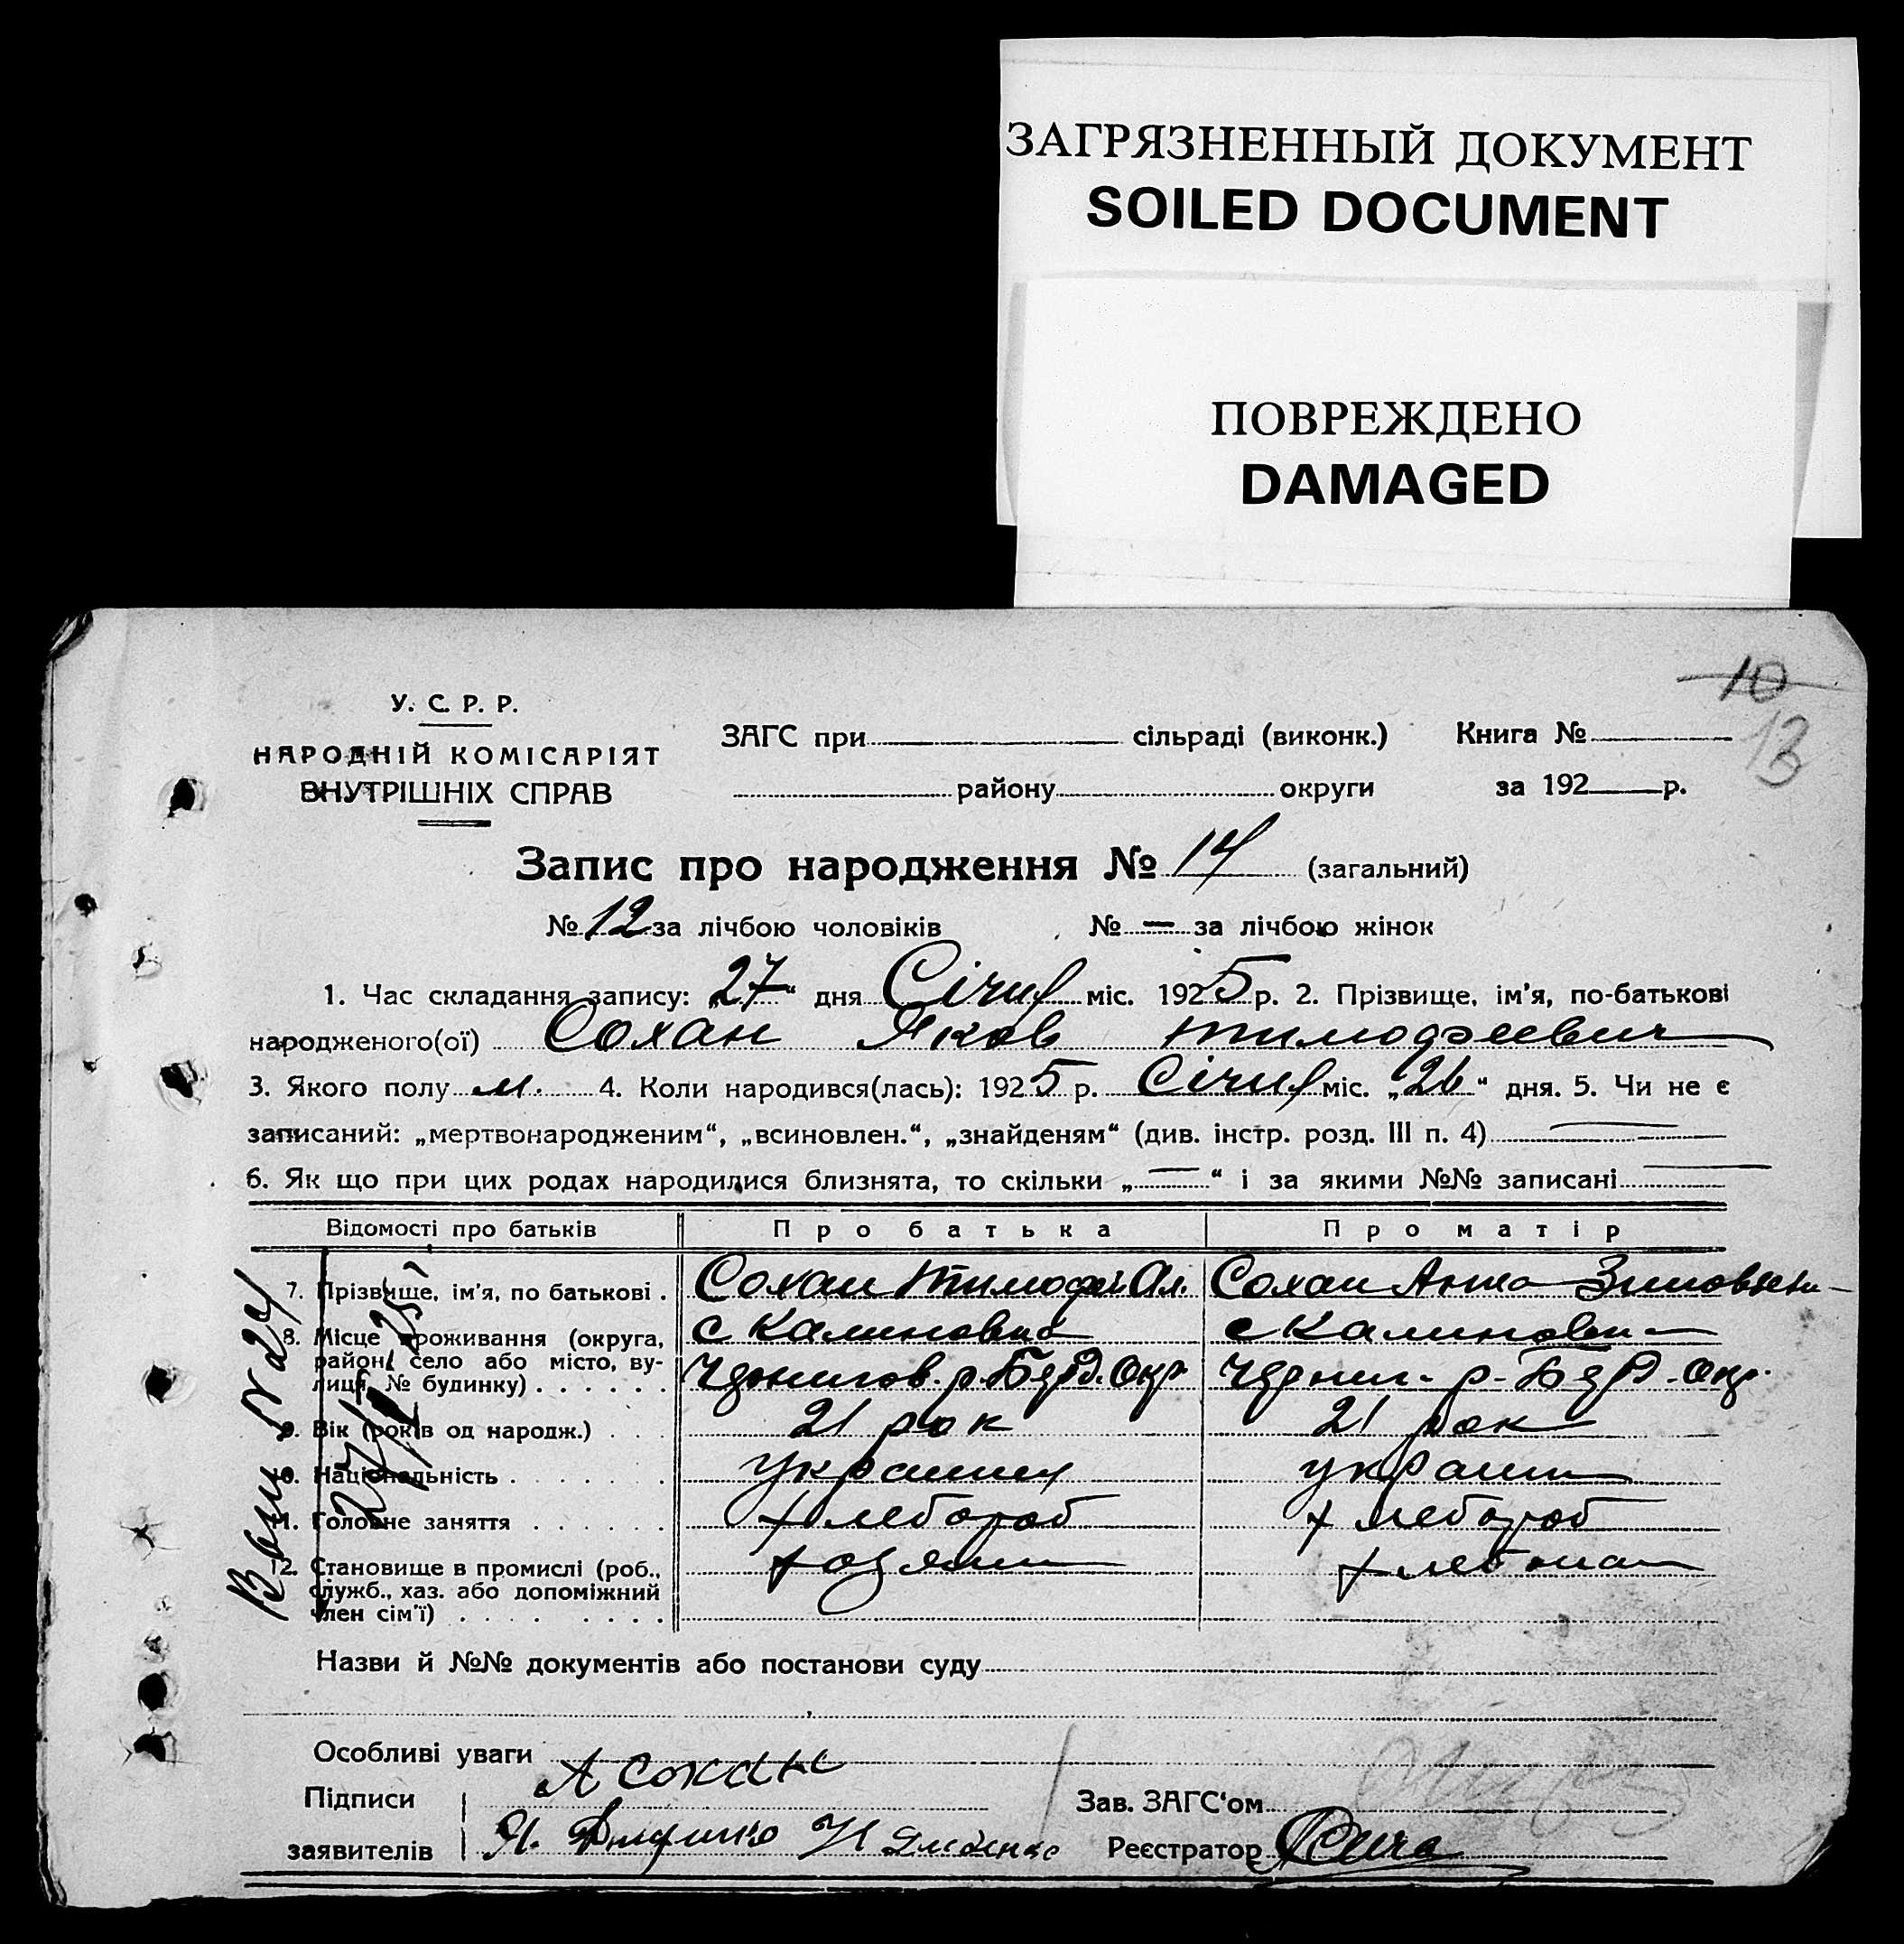 ЗАГРЯЗНЕННЫЙ ДОКУМЕНТ
SOILED DOCUMENT
ПОВРЕЖДЕНО
DAMAGED
10
13
У. С. Р. Р.
НАРОДНІЙ КОМІСАРІЯТ
ВНУТРІШНІХ СПРАВ
ЗАГС при сільраді (виконк.) Книга №
району округи за 192 р.
Запис про народження № 14 (загальний)
№ 12 за лічбою чоловіків № — за лічбою жінок
1. Час складання запису: „27“ дня Січня міс. 1925 р. 2. Прізвище, ім'я, по-батькові
народженого(ої) Сохан Яков Тимофеевич
3. Якого полу м. 4. Коли народився(лась): 1925 р. Січня міс. „26“ дня. 5. Чи не є
записаний: „мертвонародженим“, „всиновлен.“, „знайденям“ (див. інстр. розд. III п. 4) —
6. Як що при цих родах народилися близнята, то скільки „—“ і за якими №№ записані —
Відомості про батьків Про батька Про матір
7. Прізвище, ім'я, по батькові . Сохан Тимофей Ал. Сохан Анна
8. Місце проживання (округа, с Калиновка с Калиновка
район, село або місто, ву-
лиця, № будинку) . . . . . . Чернигов. р. Берд. Окр Черниг. р. Берд. Окр.
9. Вік (років од народж.) . . . 21 рок 21 рок
10. Національність . . . . . . украинец украин
11. Головне заняття . . . . . . хлебороб хлебороб
12. Становище в промислі (роб., хозяин
служб., хаз. або допоміжний
член сім'ї) . . . . . . . .
№ 24
27/I 25
Назви й №№ документів або постанови суду
Особливі уваги
Підписи А Сохан Зав. ЗАГС'ом
заявителів Я. Реєстратор